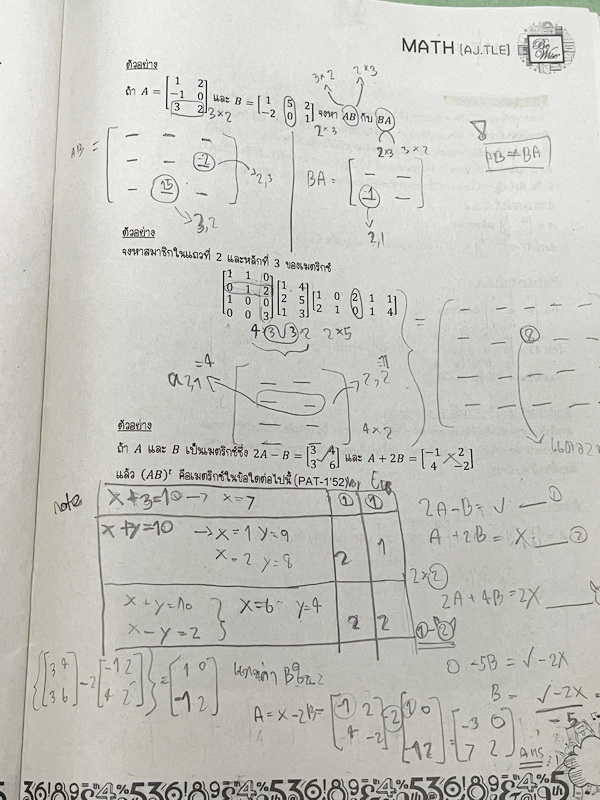 MATH (AJ.TLE)
Be Wise
ตัวอย่าง
3×2 2×3
ถ้า A = [1 2; -1 0; 3 2] และ B = [1 5 2; -2 0 1] จงหา AB กับ BA
3×2 2×3 2×3 3×2
AB = [— — —; — — -2; — 15 —] 2,3
3,2
BA = [— —; -1 —]
2,1
AB ≠ BA
ตัวอย่าง
จงหาสมาชิกในแถวที่ 2 และหลักที่ 3 ของเมตริกซ์
[1 1 0; 0 1 2; 1 0 0; 0 0 3] [1 4; 2 5; 1 3] [1 0 2 1 1; 2 1 0 1 4]
4×3 3×2 2×5
=4 =11
a2,1 2,2
4×2
8
ตัวอย่าง
ถ้า A และ B เป็นเมตริกซ์ซึ่ง 2A − B = [3 4; 3 6] และ A + 2B = [-1 2; 4 -2]
แล้ว (AB)ᵗ คือเมตริกซ์ในข้อใดต่อไปนี้ (PAT-1'52)
note
x+3=10 → x=7 ① ①
x+y=10 → x=1 y=9 2 1
x=2 y=8
x+y=10
x−y=2 } x=6 y=4 2 2
2A−B= √ — ①
A+2B= x — ②
2×②
2A+4B=2x
①−②
0 −5B = √−2x
B = √−2x / −5
{[3 4; 3 6] −2[-1 2; 4 -2]} = [1 0; -1 2]
A = x−2B = [-1 2; 4 -2] −2 [1 0; -1 2] = [-3 0; 7 2]
Ans